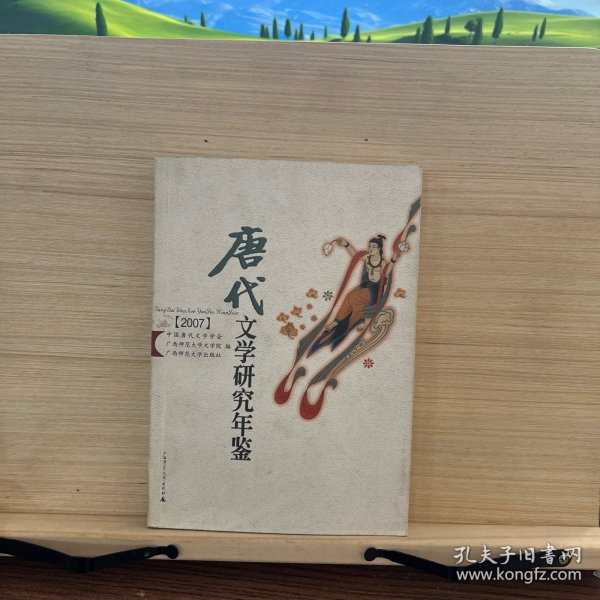 唐代
文学研究年鉴
Tang Dai Wen Xue Yan Jiu Nian Jian
【2007】
中国唐代文学学会
广西师范大学文学院 编
广西师范大学出版社
广西师范大学出版社
孔夫子旧书网
www.kongfz.com